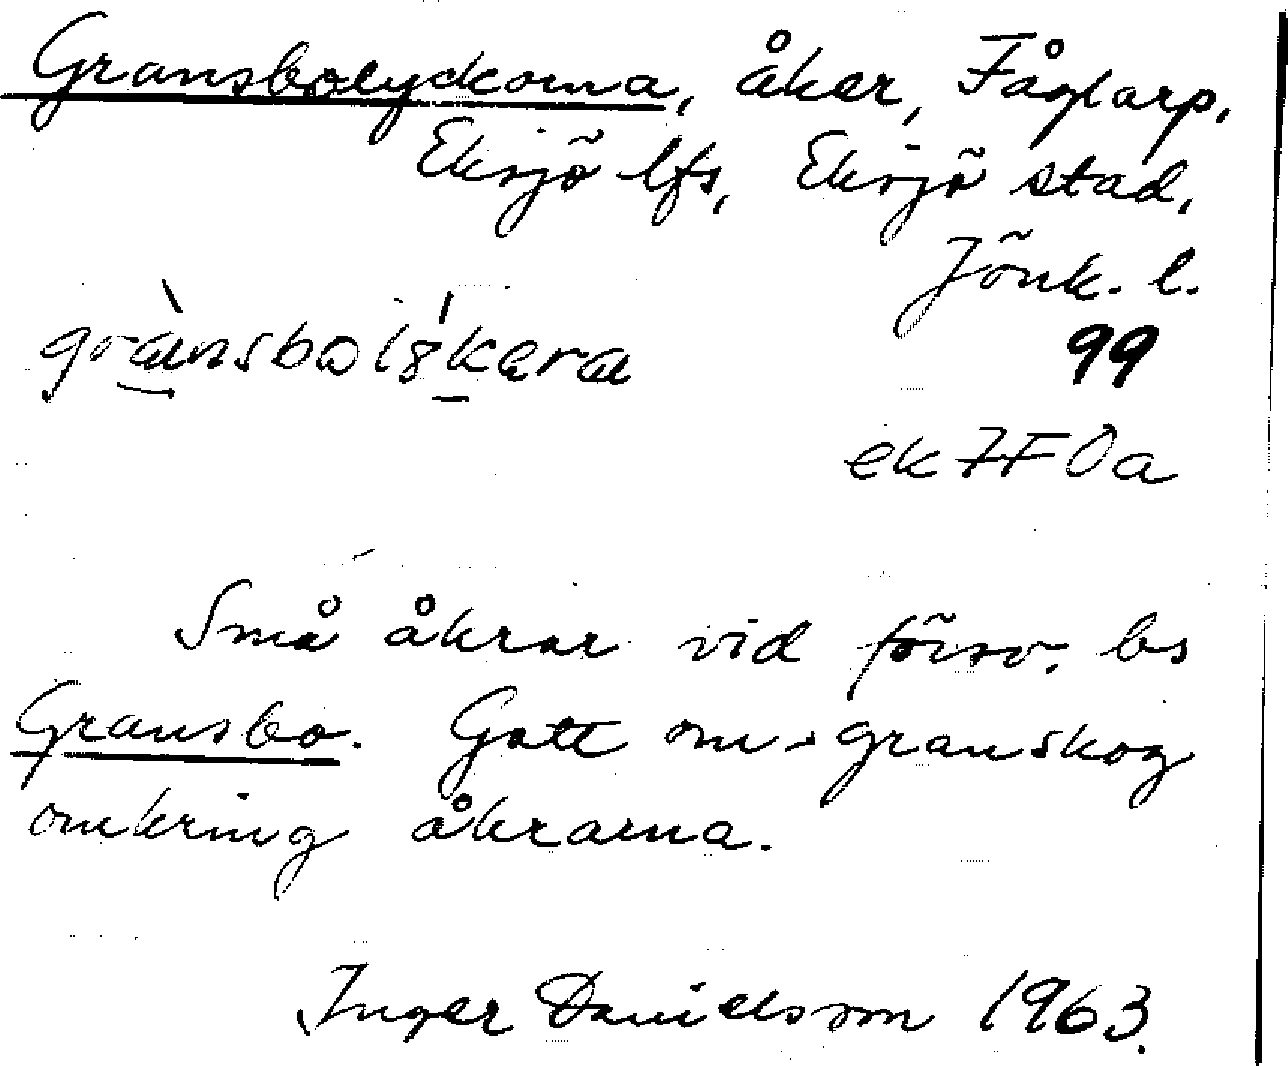 Gransbolyckorna, åker, Fåglarp,
Eksjö lfs, Eksjö stad,
Jönk. l.
grànsbolýkera
99
ek 7F 0a
Små åkrar vid försv. bs
Gransbo. Gott om granskog
omkring åkrarna.
Inger Danielsson 1963.